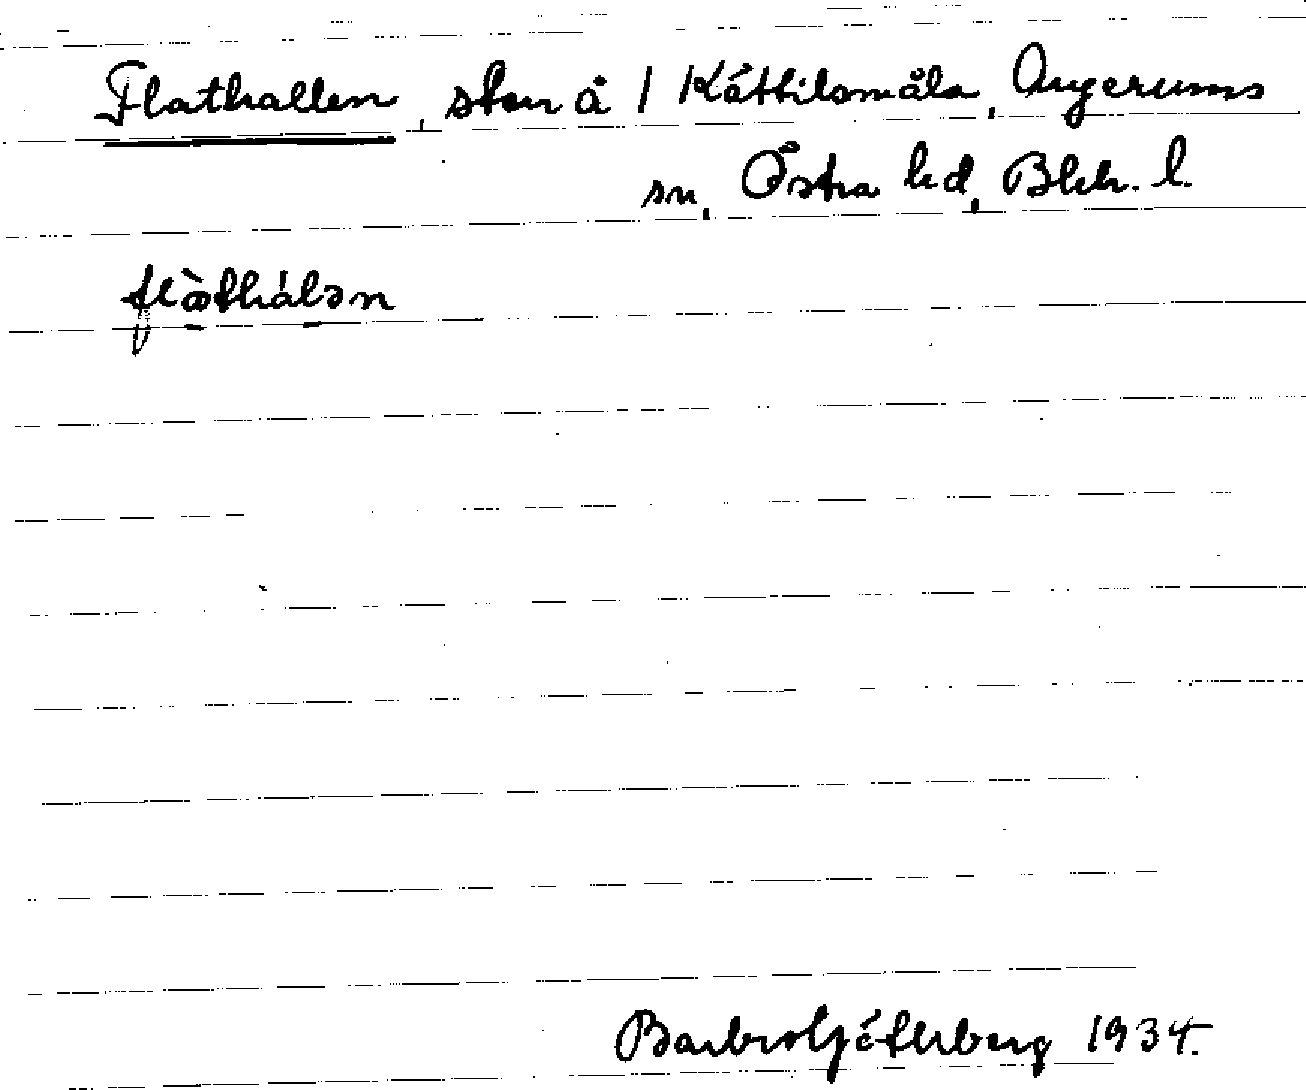 Flathallen, sten å 1 Kättilsmåla, Augerums
sn, Östra hd, Blek. l.
flàthálən
Barbro Götherberg 1934.